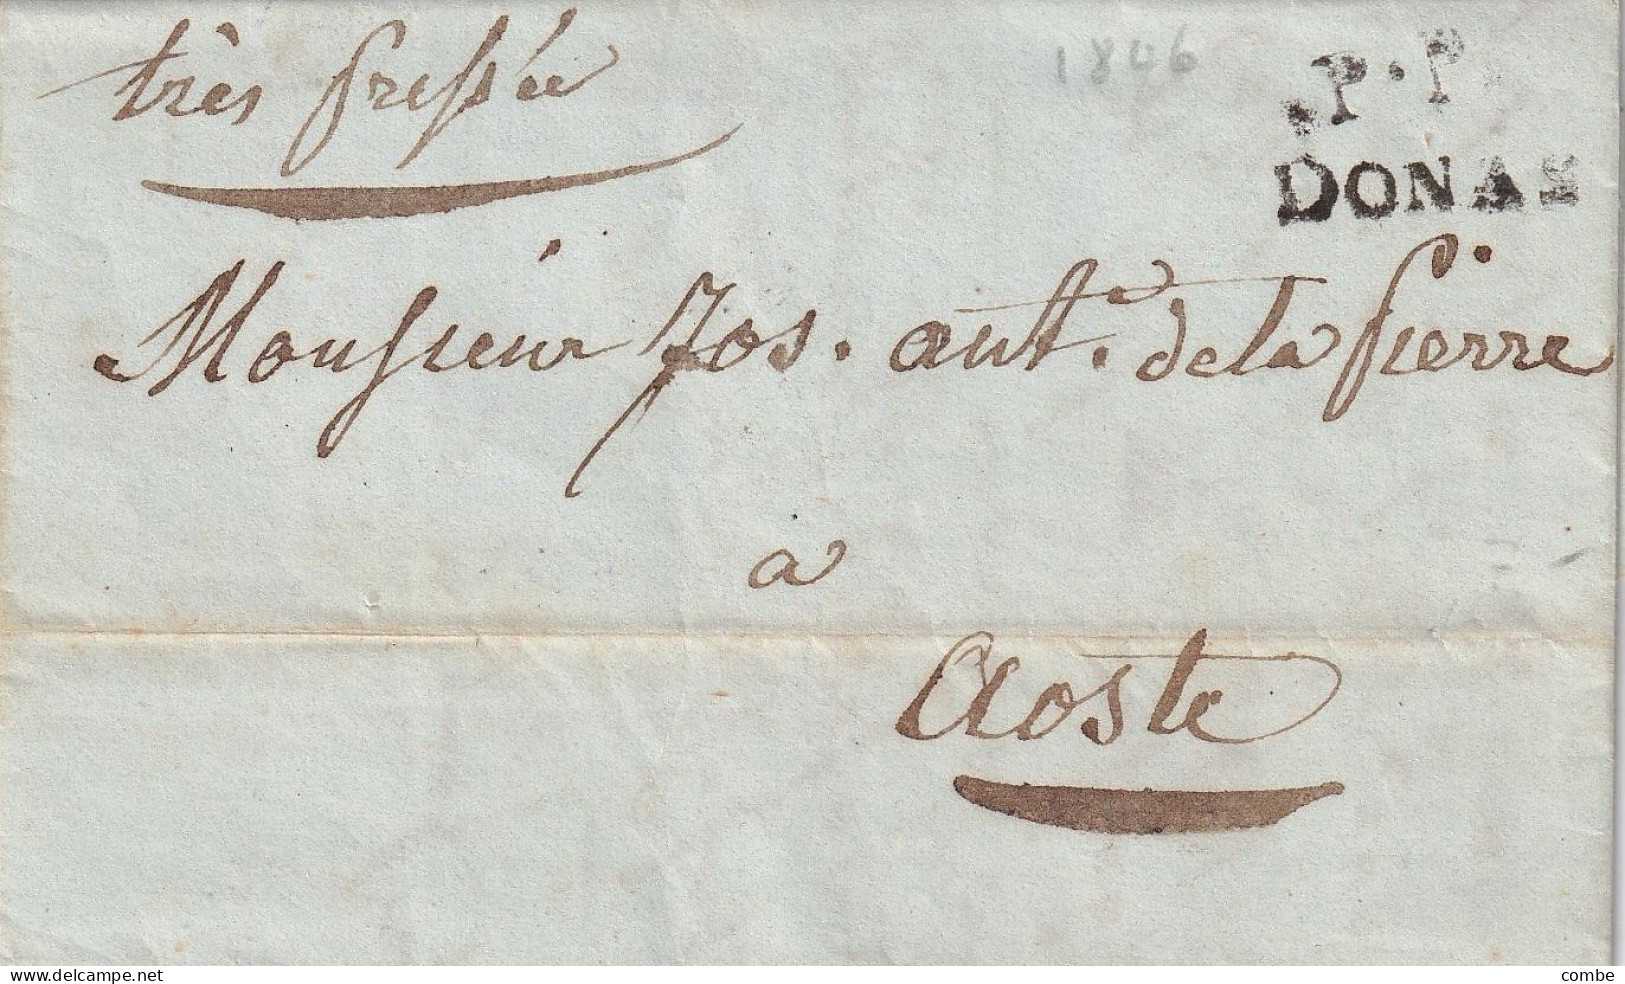 très pressée
1806
P. P.
DONAS
Monsieur Jos. ant. de la pierre
a
Aoste
delcampe.net
combe